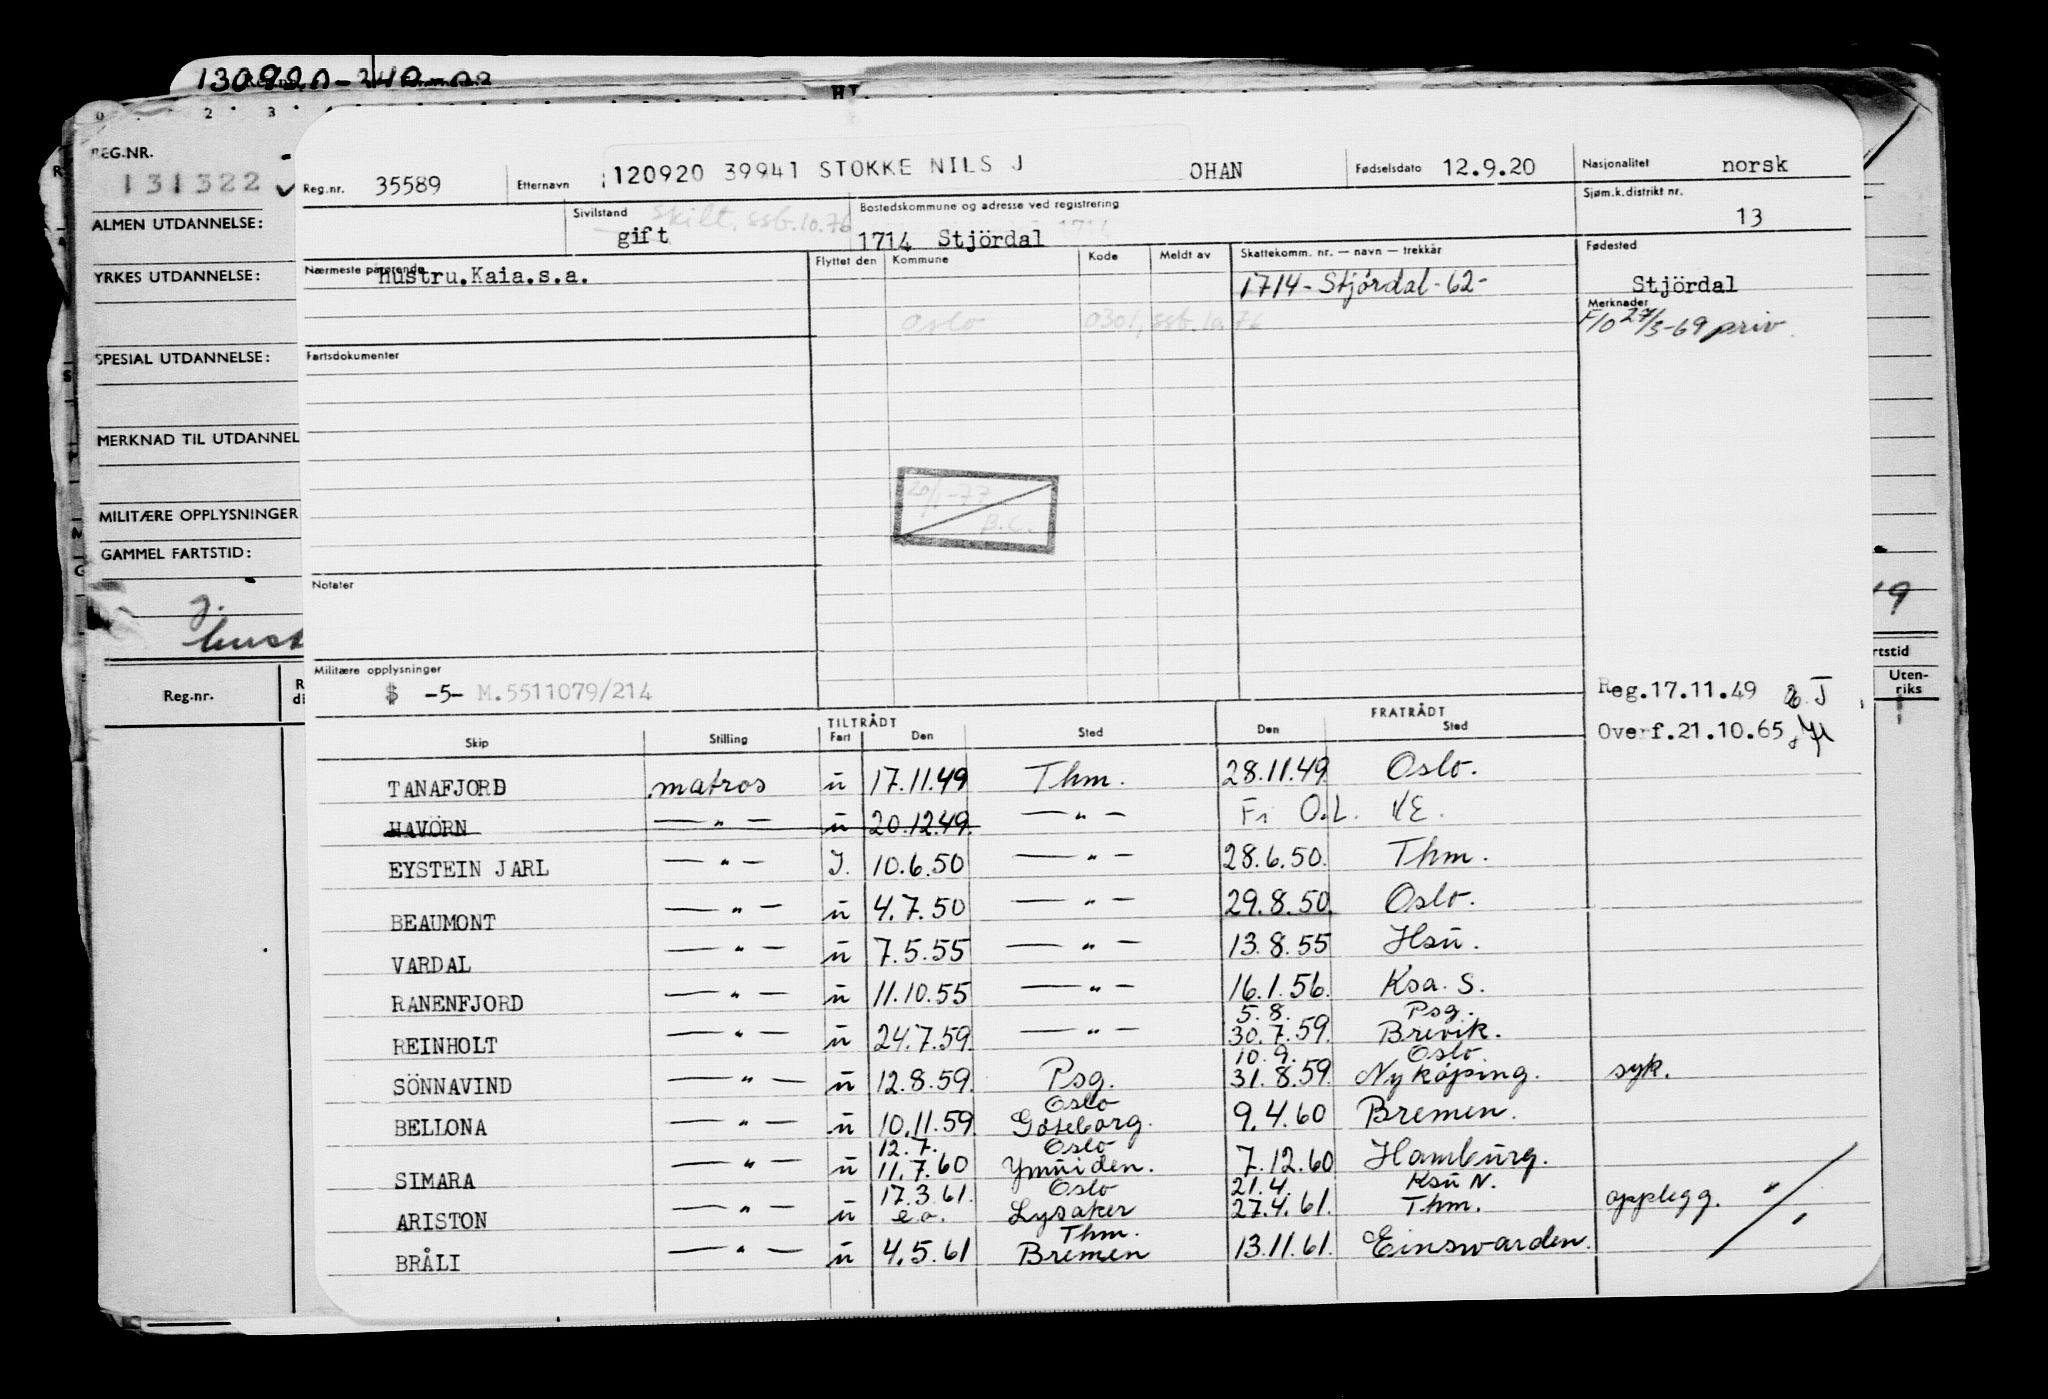 130920-240
HI
0 2 3
REG.NR.
131322 ✓
ALMEN UTDANNELSE:
YRKES UTDANNELSE:
SPESIAL UTDANNELSE:
MERKNAD TIL UTDANNEL
MILITÆRE OPPLYSNINGER
GAMMEL FARTSTID:
Reg.nr.
rtstid
Uten-
riks
Reg.nr. 35589 Etternavn 120920 39941 STOKKE NILS J OHAN Fødselsdato 12.9.20 Nasjonalitet norsk
Sivilstand skilt. ssb.10.76 gift
Bostedskommune og adresse ved registrering
1714 Stjördal 1714
Sjøm.k.distrikt nr. 13
Nærmeste pårørende Hustru.Kaia.s.a.
Flyttet den Kommune Kode Meldt av Skattekomm. nr. — navn — trekkår Fødested
1714 - Stjördal - 62 - Stjördal
Oslo 0301, ssb. 10.76
Merknader
F/O 27/5-69 priv.
Fartsdokumenter
20/1-77
B.C.
Notater
Militære opplysninger
$ -5- M.5511079/214
Reg.17.11.49
Overf.21.10.65
TILTRÅDT FRATRÅDT
Skip Stilling Fart Den Sted Den Sted
TANAFJORD matros u 17.11.49 Thm. 28.11.49 Oslo.
HAVÖRN — " — u 20.12.49. — " — Fi O.L. VE.
EYSTEIN JARL — " — J. 10.6.50 — " — 28.6.50. Thm.
BEAUMONT — " — u 4.7.50 — " — 29.8.50. Oslo.
VARDAL — " — u 7.5.55 — " — 13.8.55 Hsu.
RANENFJORD — " — u 11.10.55 — " — 16.1.56. Ksa. S.
5.8. Psg.
REINHOLT — " — u 24.7.59. — " — 30.7.59. Brevik.
10.9. Oslo.
SÖNNAVIND — " — u 12.8.59. Psg. 31.8.59. Nyköping. syk.
Oslo
BELLONA — " — u 10.11.59. Göteborg. 9.4.60 Bremen.
12.7. Oslo
SIMARA — " — u 11.7.60 Ymuiden. 7.12.60 Hamburg.
17.3.61. Oslo 21.4. Ksu N.
ARISTON — " — u e.o. Lysaker 27.4.61. Thm. opplegg.
Thm.
BRÅLI — " — u 4.5.61 Bremen 13.11.61. Einswarden.